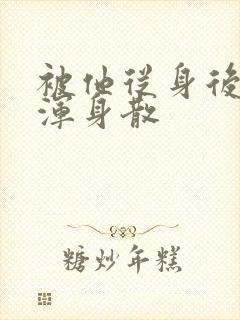 被他從身後
渾身散
糖炒年糕